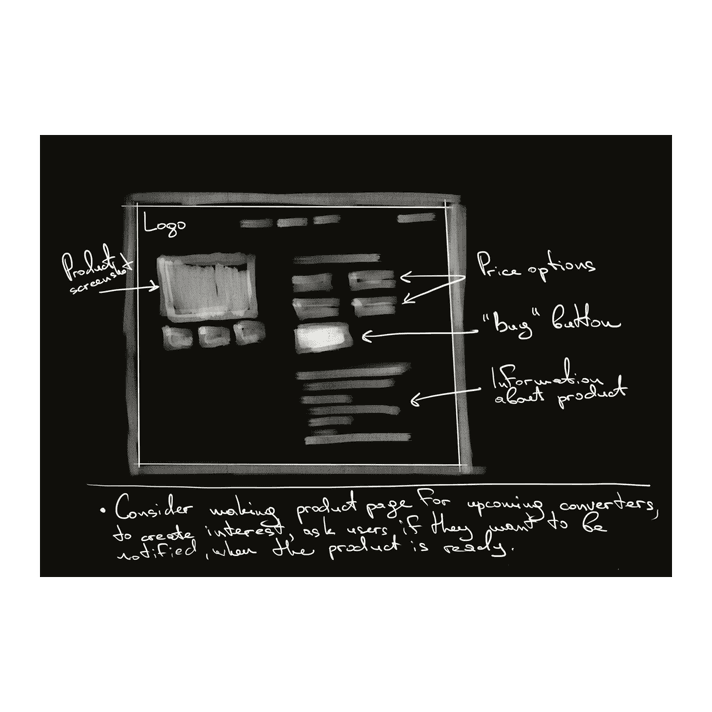 Logo
Product
screenshot
Price options
"Buy" button
Information
about product
• Consider making product page for upcoming converters,
to create interest, ask users if they want to be
notified, when the product is ready.